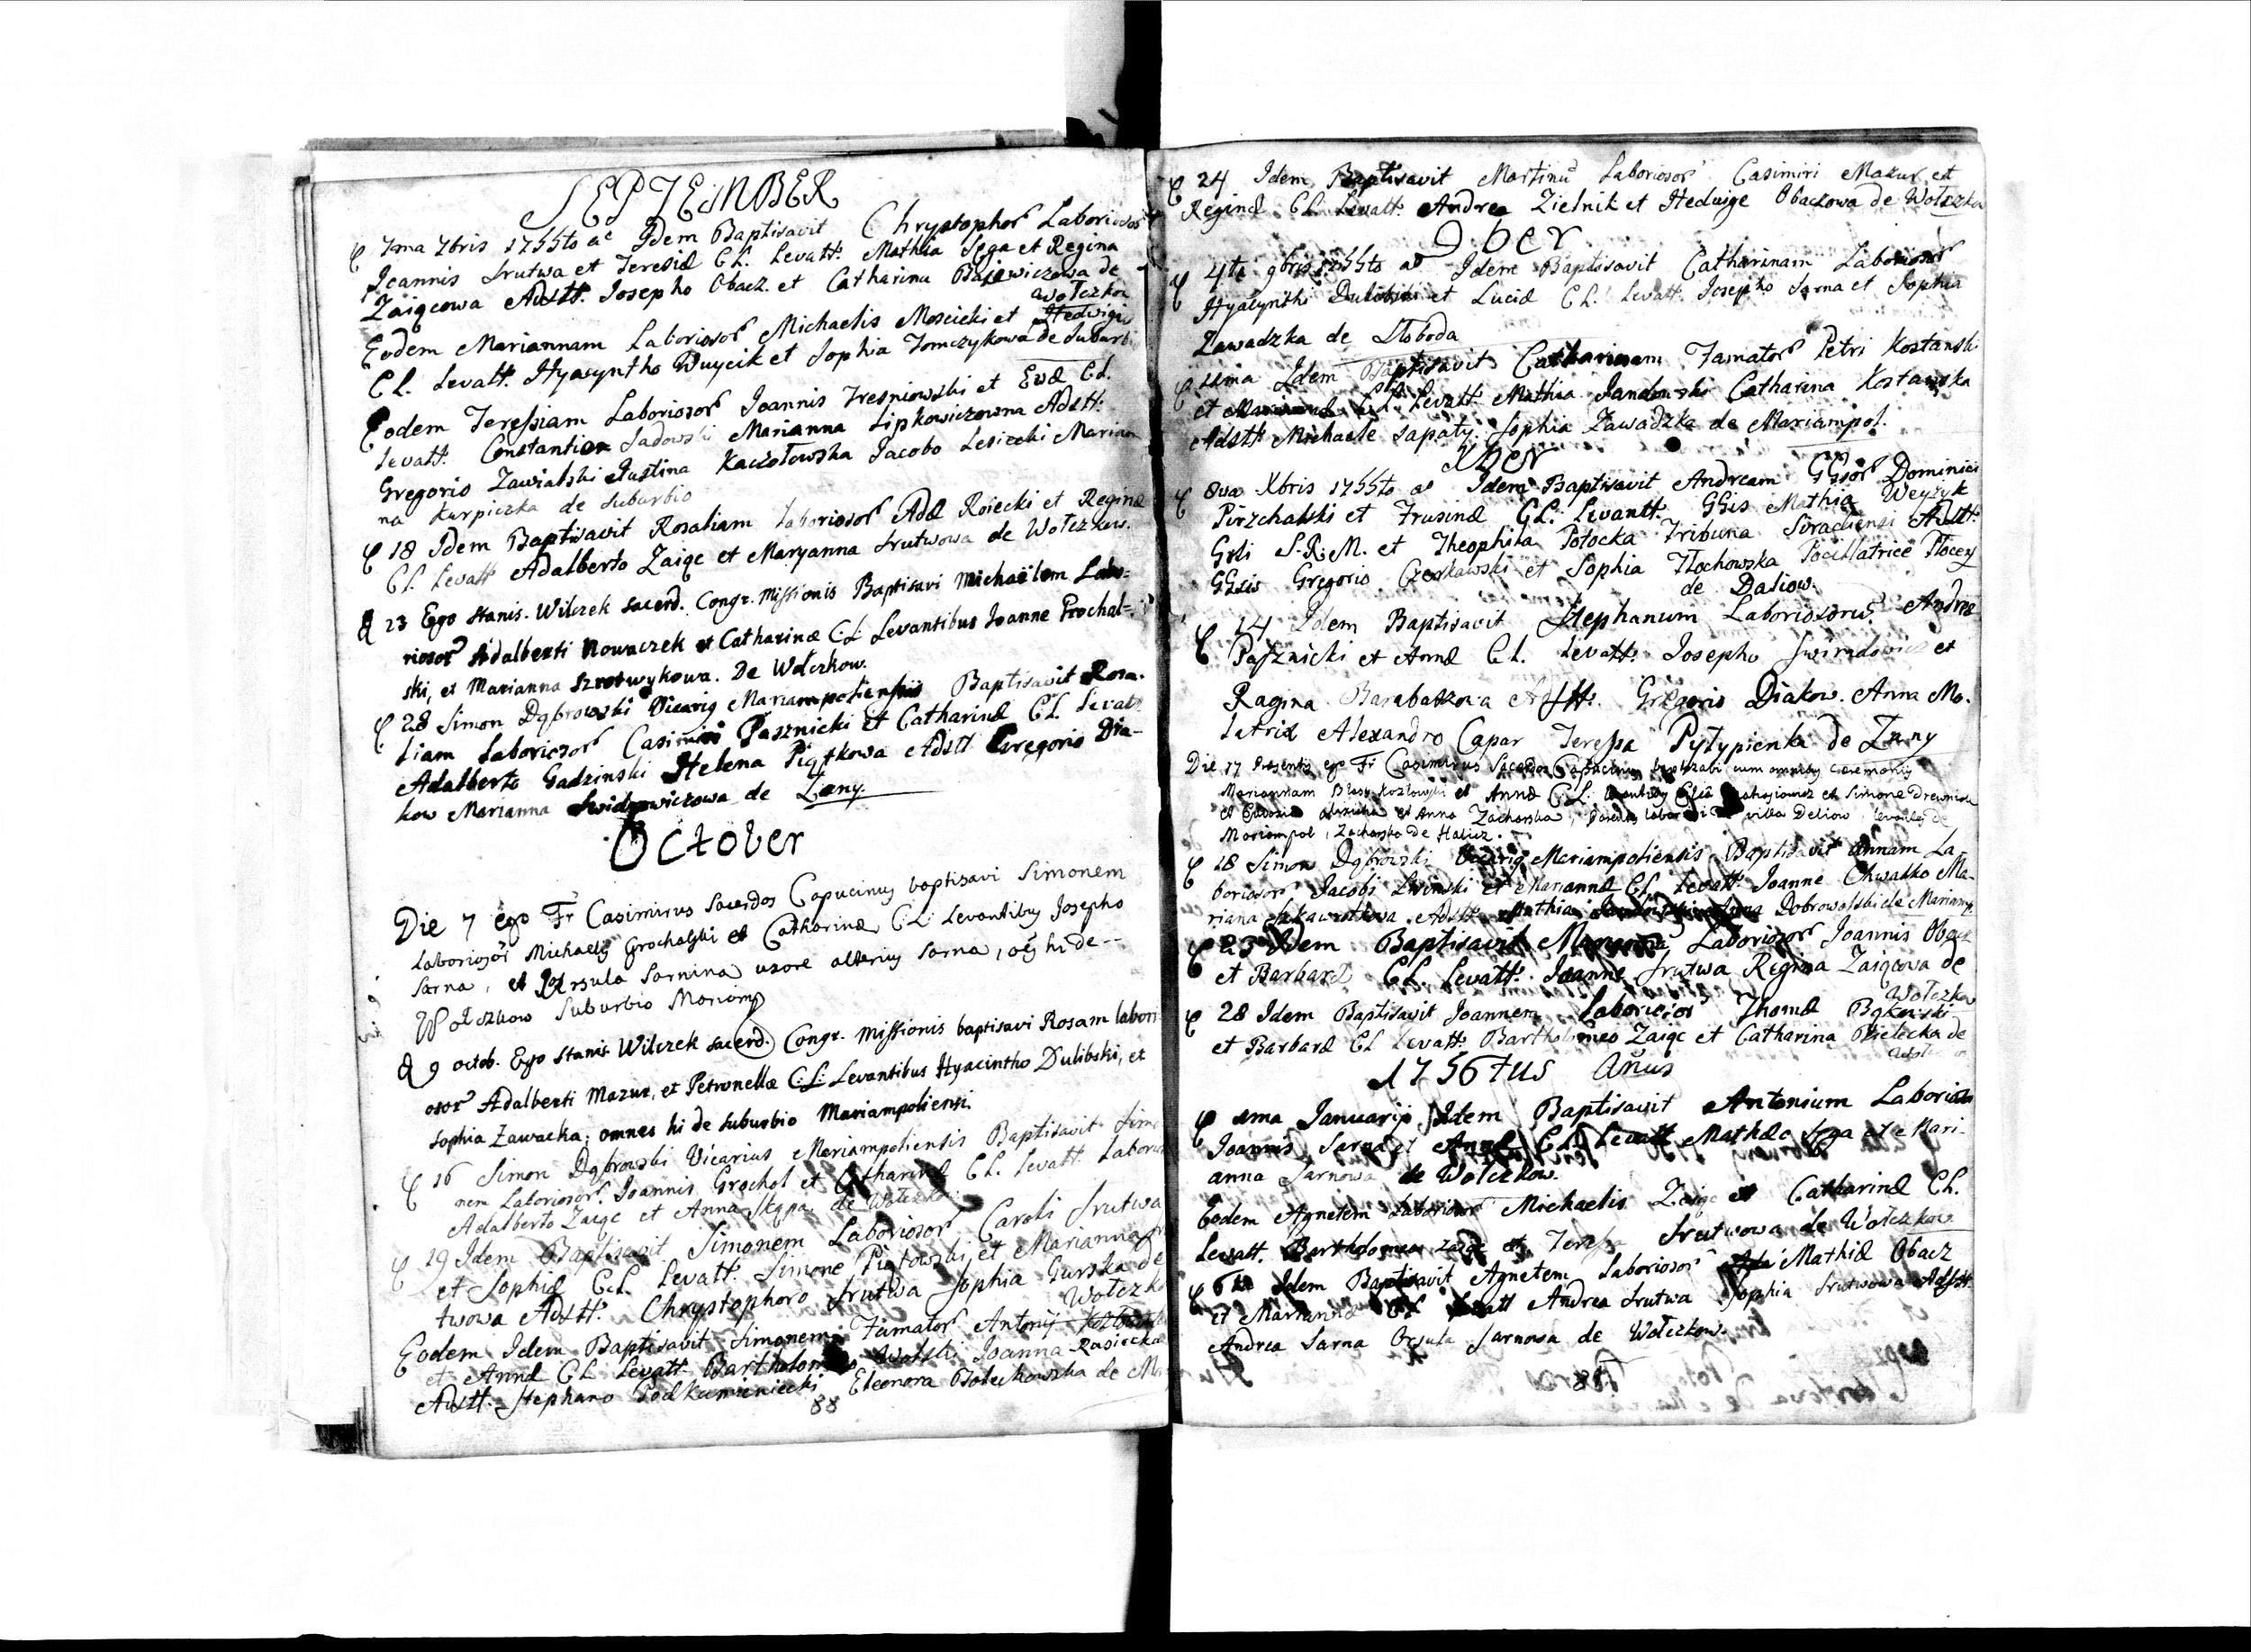 SEPTEMBER
7ma 7bris 1755to ac Idem Baptisavit Chrystophor Laboriosor
Joannis Srutwa et Teresiæ C.L. Levatt. Mathia Sęga et Regina
Zaiącowa Adstt. Josepho Obacz. et Catharina Bajewiczowa de
Wołczkow
Eodem Mariannam Laboriosor Michaelis Moscicki et Hedwigis
C.L. Levatt. Hyacyntho Wuycik et Sophia Tomczykowa de Suburb.
Eodem Teressiam Laboriosor Joannis Tresniowski et Evæ C.L.
Levatt. Constantien Sadowski Marianna Lipkowiczowna Adstt.
Gregorio Zawialski Justina Kaczołowska Jacobo Lesiecki Marian
na Karpiczka de Suburbio
18 Idem Baptisavit Rosaliam Laboriosor Adæ Rosiecki et Reginæ
C.L. Levatt Adalberto Zaiąc et Maryanna Srutwowa de Wołczkow.
23 Ego Stanis. Wilczek sacerd. Congr. Missionis Baptisavi Michaëlem Labo=
riosor Adalberti Nowaczek et Catharinæ C:L: Levantibus Joanne Prochal=
ski, et Marianna Szrotwykowa. De Wołczkow.
28 Simon Dąbrowski Vicarig Mariampoliensis Baptisavit Rosa.
liam Laboriosor Casimiri Pasznicki et Catharinæ C.L. Levatt.
Adalberto Gadzinski Helena Piątkowa Adstt Gregorio Dia-
kow Marianna Swidrowiczowa de Łany.
October
Die 7 ego Fr Casimirus Sacerdos Capucinus baptisavi Simonem
Laboriosor Michaelis Grochalski et Catharinæ C:L: Levantibus Josepho
Sarna, et Ursula Sarnina uxore alterius Sarna, oēs hi de--
Wołczkow Suburbio Mariamp
9 octob. Ego Stanis Wilczek sacerd. Congr. Missionis baptisavi Rosam labori
osor Adalberti Mazur, et Petronellæ C:L: Levantibus Hyacintho Dulibski, et
Sophia Zawacka, omnes hi de suburbio Mariampoliensi.
16 Simon Dąbrowski Vicarius Mariampoliensis Baptisavit Simo
nem Laboriosor Joannis Grochol et Catharinæ C.L. Levatt. Laborio
Adalberto Zaiąc et Anna Skąpa de Wołczko
19 Idem Baptisavit Simonem Laboriosor Caroli Srutwa
et Sophiæ C.L. Levatt. Simone Piątowski et Marianna Sru
twowa Adstt. Chrystophoro Srutwa Sophia Gurska de
Wołczko
Eodem Idem Baptisavit Simonem Famator Antonij
et Annæ C.L Levatt Bartholomeo Wolski Joanna Rasiecka
Adstt. Stephano Podkamieniecki Eleonora Bolechowska de M
88
24 Idem Baptisavit Martinū Laboriosor Casimiri Mazur et
Reginæ C.L. Levatt. Andrea Zielnik et Hedwige Obaczowa de Wołczkow
9ber
4ta 9bris 1755to a Idem Baptisavit Catharinam Laboriosor
Hyacynthi Dulibski et Luciæ C.L. Levatt. Josepho Sarna et Sophia
Zawadzka de Słoboda
11ma Idem Baptisavit Catharinam Famator Petri Kostanski
et C.L. Levatt Mathia Jandurski Catharina Kostanska
Adstt Michaele Sapaty. Sophia Zawadzka de Mariampol.
Xber
8va Xbris 1755to a Idem Baptisavit Andream GGsor Dominici
Pirzchalski et Frusinæ C.L. Levantt. GGsis Mathia Weyzyk
Grli S.R.M. et Theophila Potocka Tribuna Siradiensi Adstt.
GGsis Gregorio Czoskawski et Sophia Tłochowska Pocillatrice Płocey
de Daliow.
14 Idem Baptisavit Stephanum Laboriosorū Andreæ
Pasznicki et Annæ C.L. Levatt. Josepho Swiradowicz et
Ragina Barabaszowa Adstt. Gregorio Diakow. Anna Mo.
latrix Alexandro Capar Teressa Pyłypienka de Łany
Die 17 Presentis ego Fr Casimirus Sacerdos Capucinus baptizavi cum omnibus ceremonijs
Mariannam Blasij Kozłowski et Annæ C.L: Levantibus Eliā et Simone Drewniak
et Anna Zacharska, villa Deliow, levantes de
Mariampol, Zacharska de Halicz.
18 Simon Dąbrowski Vicarig Mariampoliensis Baptisavit Annam La-
boriosor Jacobi Lwinski et Mariannæ C.L. Levatt. Joanne Chwałko Ma-
riana Adstt. Mathia Dobrowolski de Mariamp.
23 Idem Baptisavit Laboriosor Joannis Obacz
et Barbaræ C.L. Levatt. Joanne Srutwa Regina Zaiącowa de
Wołczkow
28 Idem Baptisavit Joannem Laboriosor Thomæ Bąkowski
et Barbaræ C.L Levatt. Bartholomeo Zaiąc et Catharina Obielecka de
1756tus Añus
1ma Januarij Idem Baptisavit Antonium Laborios
Joannis Sarna et Annæ C.L. Levatt Mathæo Sęga et Mari-
anna Sarnowa de Wołczkow.
Eodem Agnetem Laboriosor Michaelis Zaiąc et Catharinæ C.L.
Levatt. Bartholomeo Zaiąc et Teressa Srutwowa de Wołczkow
6ta Idem Baptisavit Agnetem Laboriosor Mathiæ Obacz
et Mariannæ C.L Levatt Andrea Srutwa Sophia Srutwowa Adstt.
Andrea Sarna Orsula Sarnowa de Wołczkow.